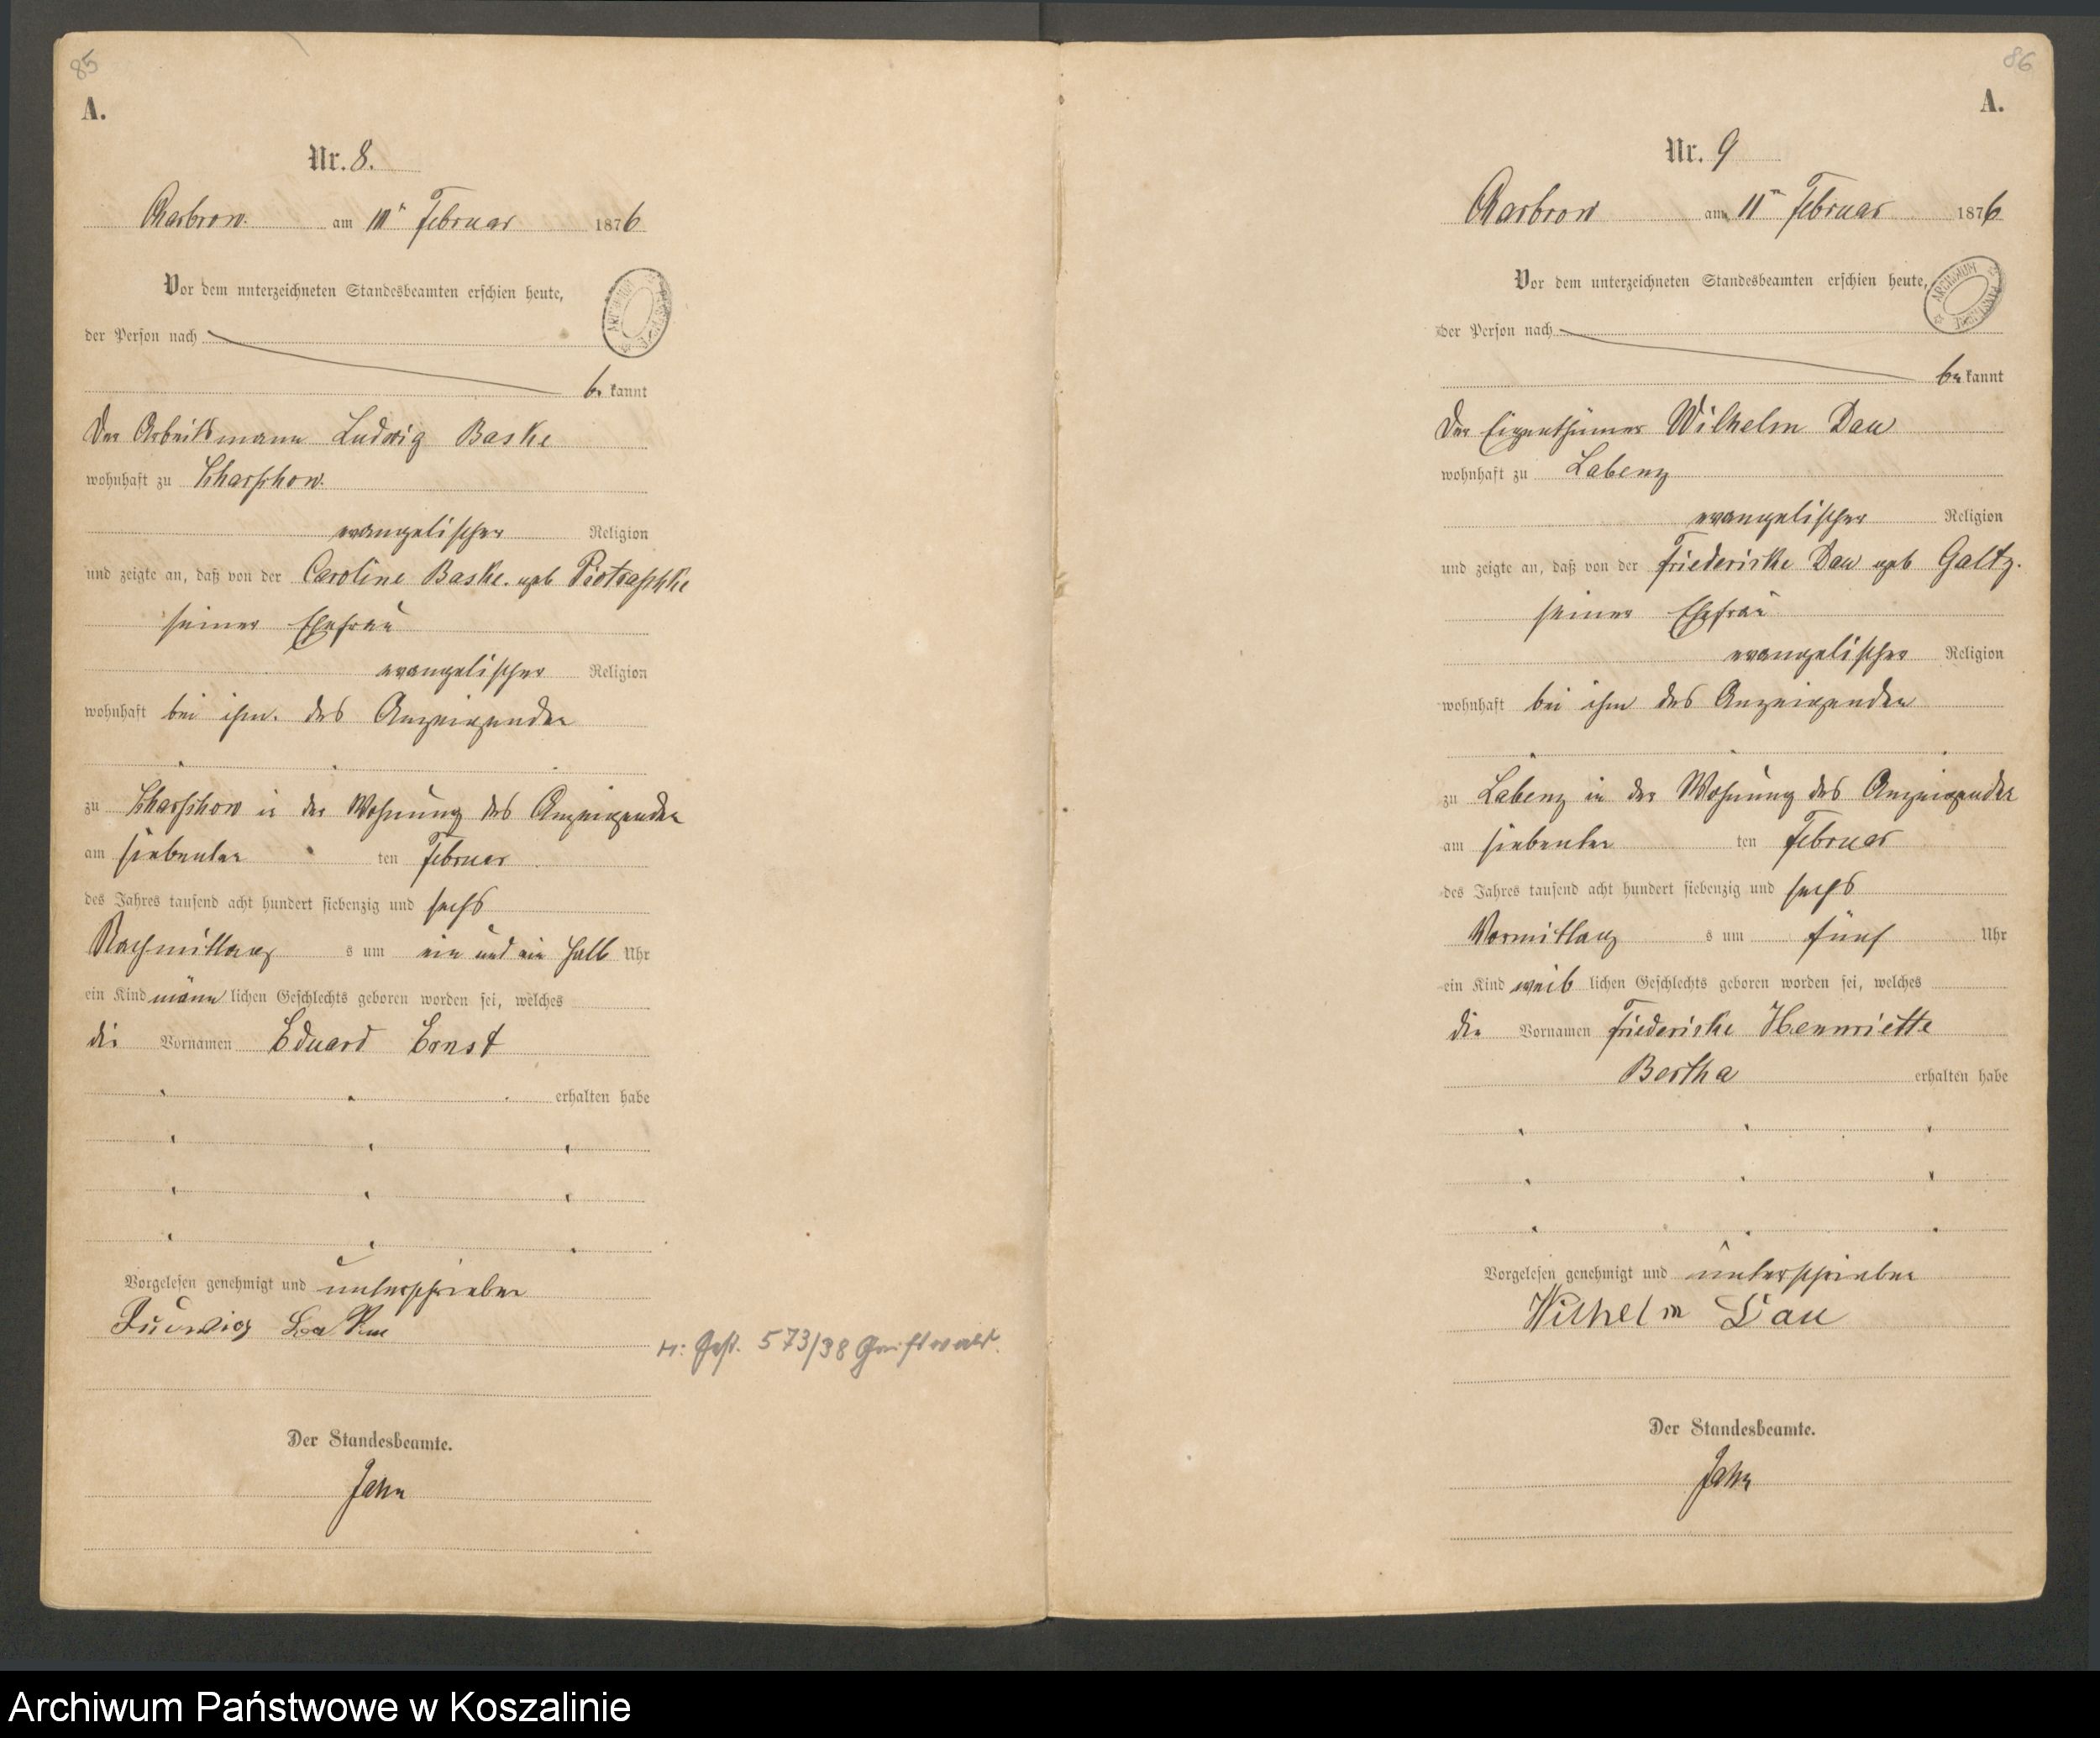 85
A.
Nr. 8.
Charbrow. am 10n Februar 1876
Vor dem unterzeichneten Standesbeamten erschien heute,
der Person nach
be kannt
Der Arbeitsmann Ludwig Baske
wohnhaft zu Scharschow.
evangelischer Religion
und zeigte an, daß von der Caroline Baske. geb
seiner Ehefrau
evangelischer Religion
wohnhaft bei ihm. des Anzeigenden
zu Scharschow in der Wohnung des Anzeigenden
am siebenten ten Februar
des Jahres tausend acht hundert siebenzig und sechs
Nachmittag s um ein und ein halb Uhr
ein Kind männ lichen Geschlechts geboren worden sei, welches
die Vornamen Eduard Ernst
erhalten habe
Vorgelesen genehmigt und unterschrieben
Ludwig Baske
H: Gest. 573/38 Greifswald.
Der Standesbeamte.
Jahn
86
A.
Nr. 9
Charbrow am 11n Februar 1876
Vor dem unterzeichneten Standesbeamten erschien heute,
ARCHIWUM PAŃSTWOWE
der Person nach
be kannt
Der Eigenthümer Wilhelm Dau
wohnhaft zu Labenz
evangelischer Religion
und zeigte an, daß von der Friederike Dau geb Galtz.
seiner Ehefrau
evangelischer Religion
wohnhaft bei ihm des Anzeigenden
zu Labenz in der Wohnung des Anzeigenden
am siebenten ten Februar
des Jahres tausend acht hundert siebenzig und sechs
Vormittag s um fünf Uhr
ein Kind weib lichen Geschlechts geboren worden sei, welches
die Vornamen Friederike Hennriette
Bertha erhalten habe
Vorgelesen genehmigt und unterschrieben
Wilhelm Dau
Der Standesbeamte.
Jahn
Archiwum Państwowe w Koszalinie